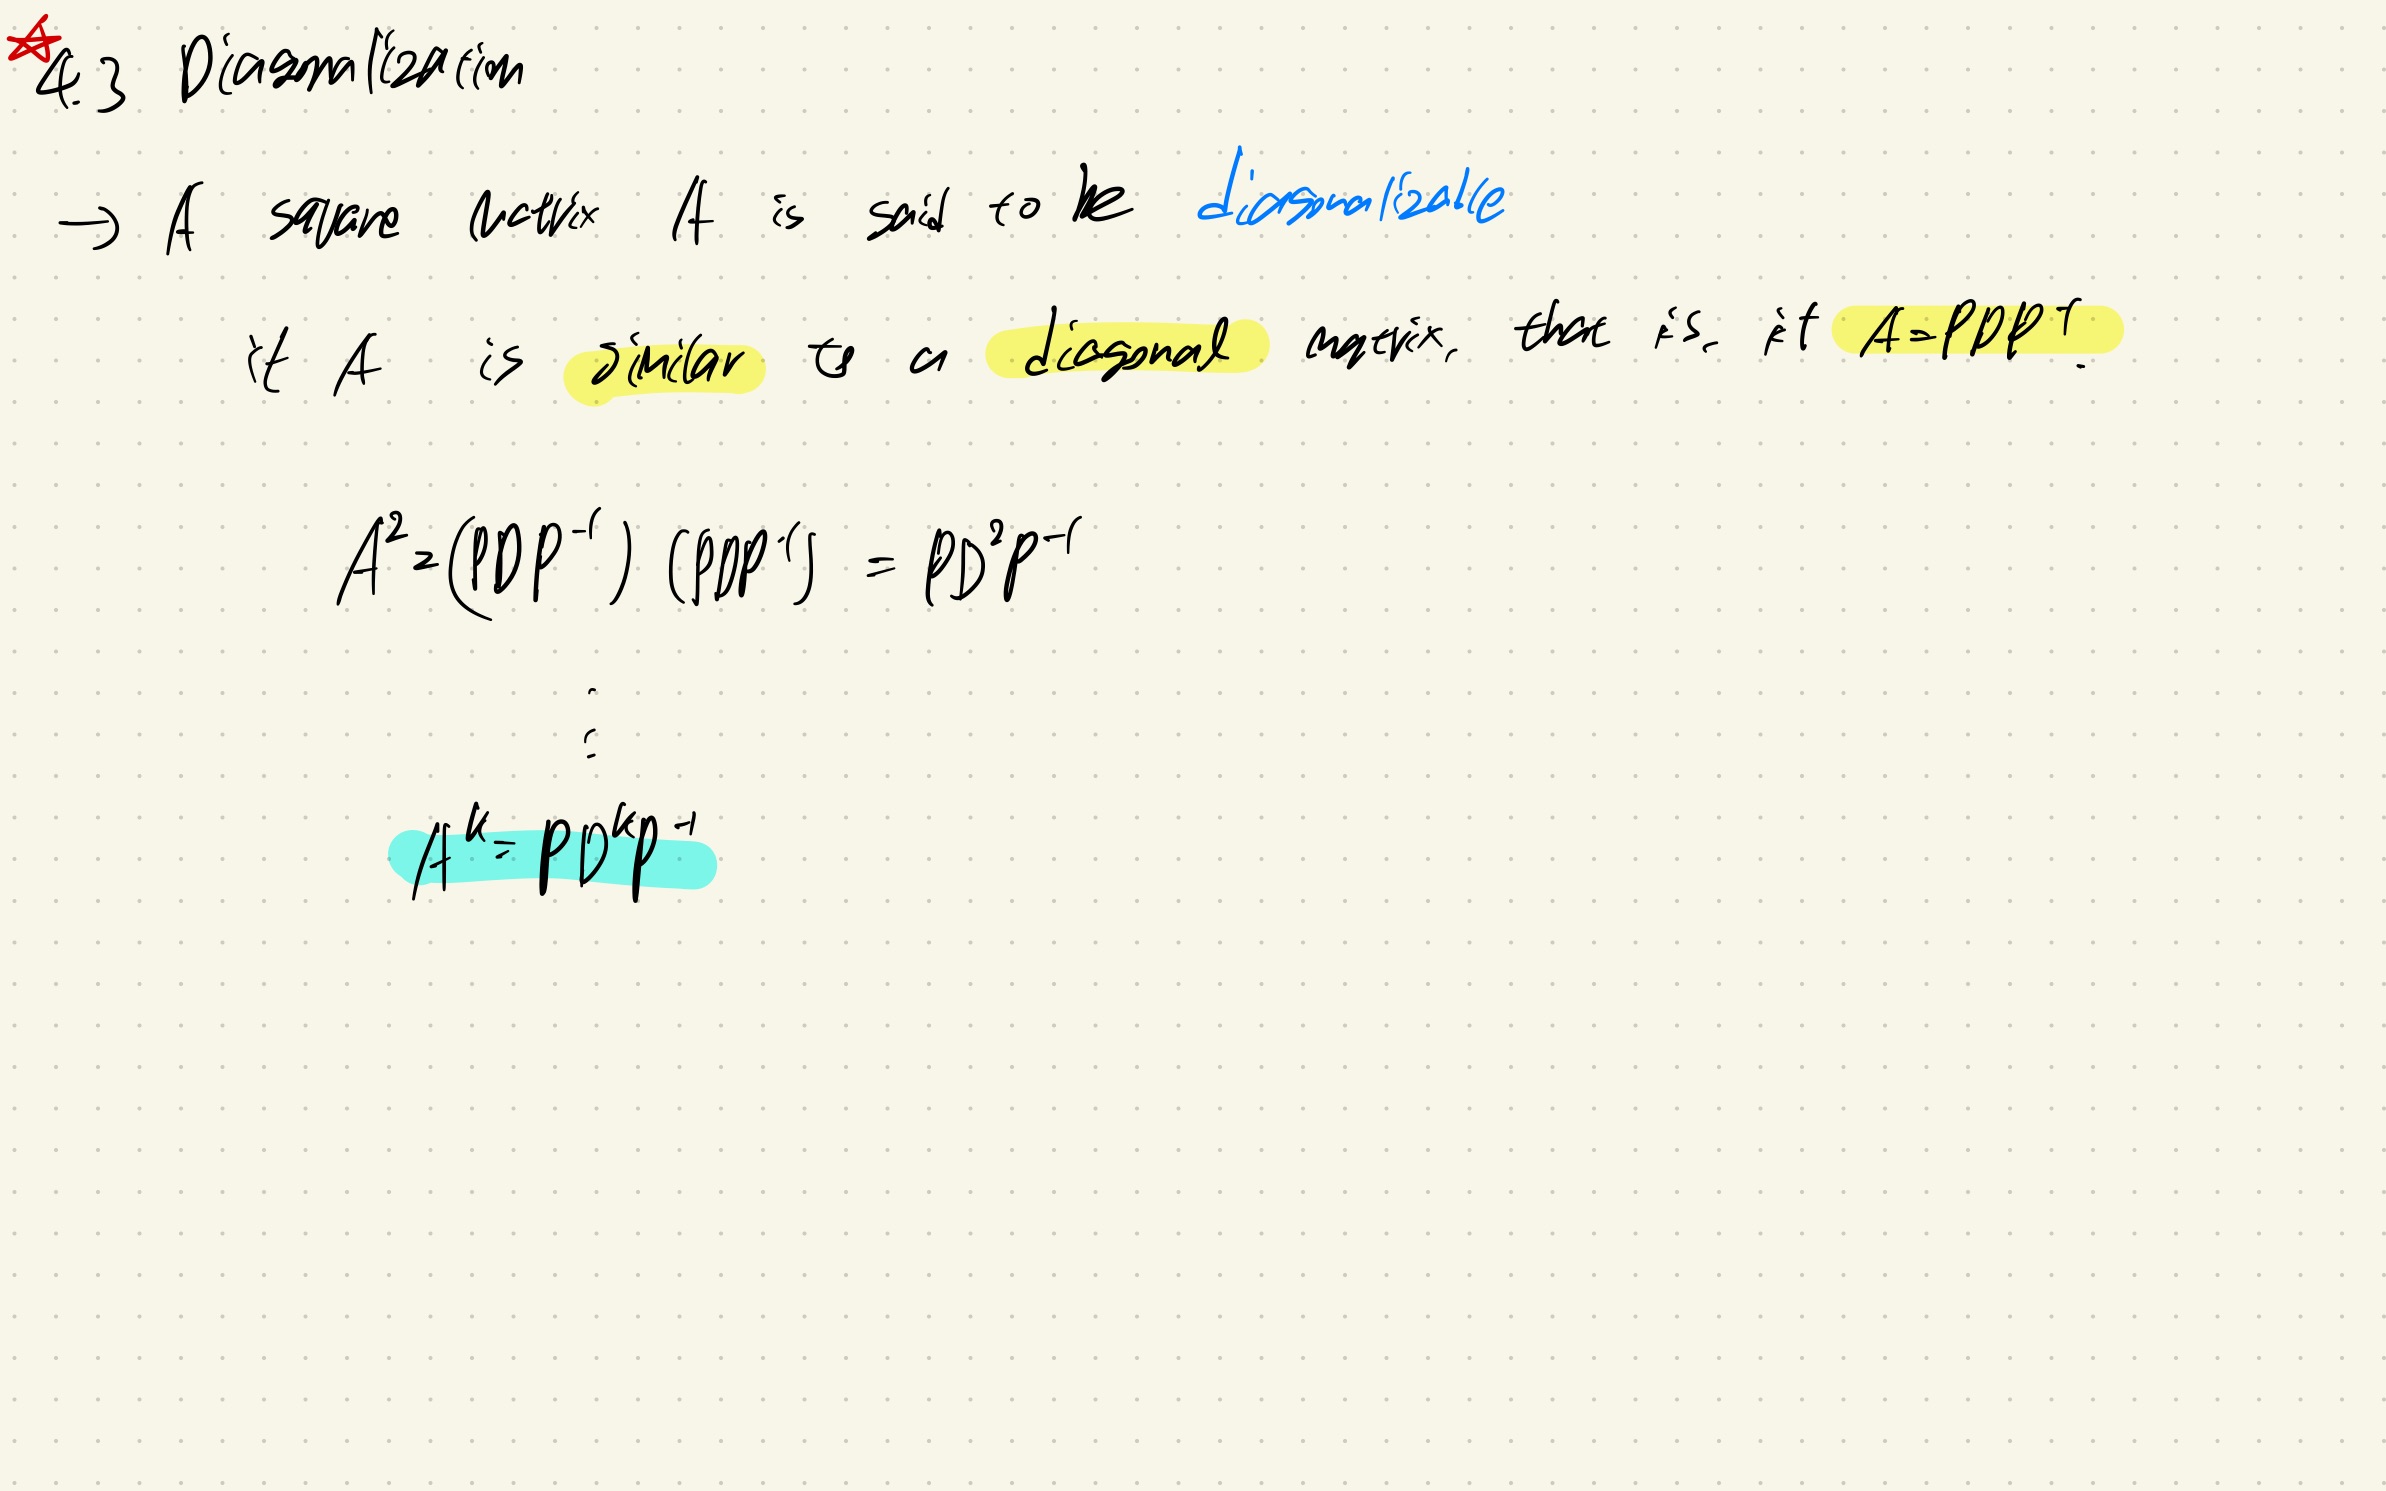 4.3 Diagonalization
→ A square matrix A is said to be diagonalizable
if A is similar to a diagonal matrix, that is, if A = PDP⁻¹.
A² = (PDP⁻¹) (PDP⁻¹) = PD²P⁻¹
⋮
Aᵏ = PDᵏP⁻¹